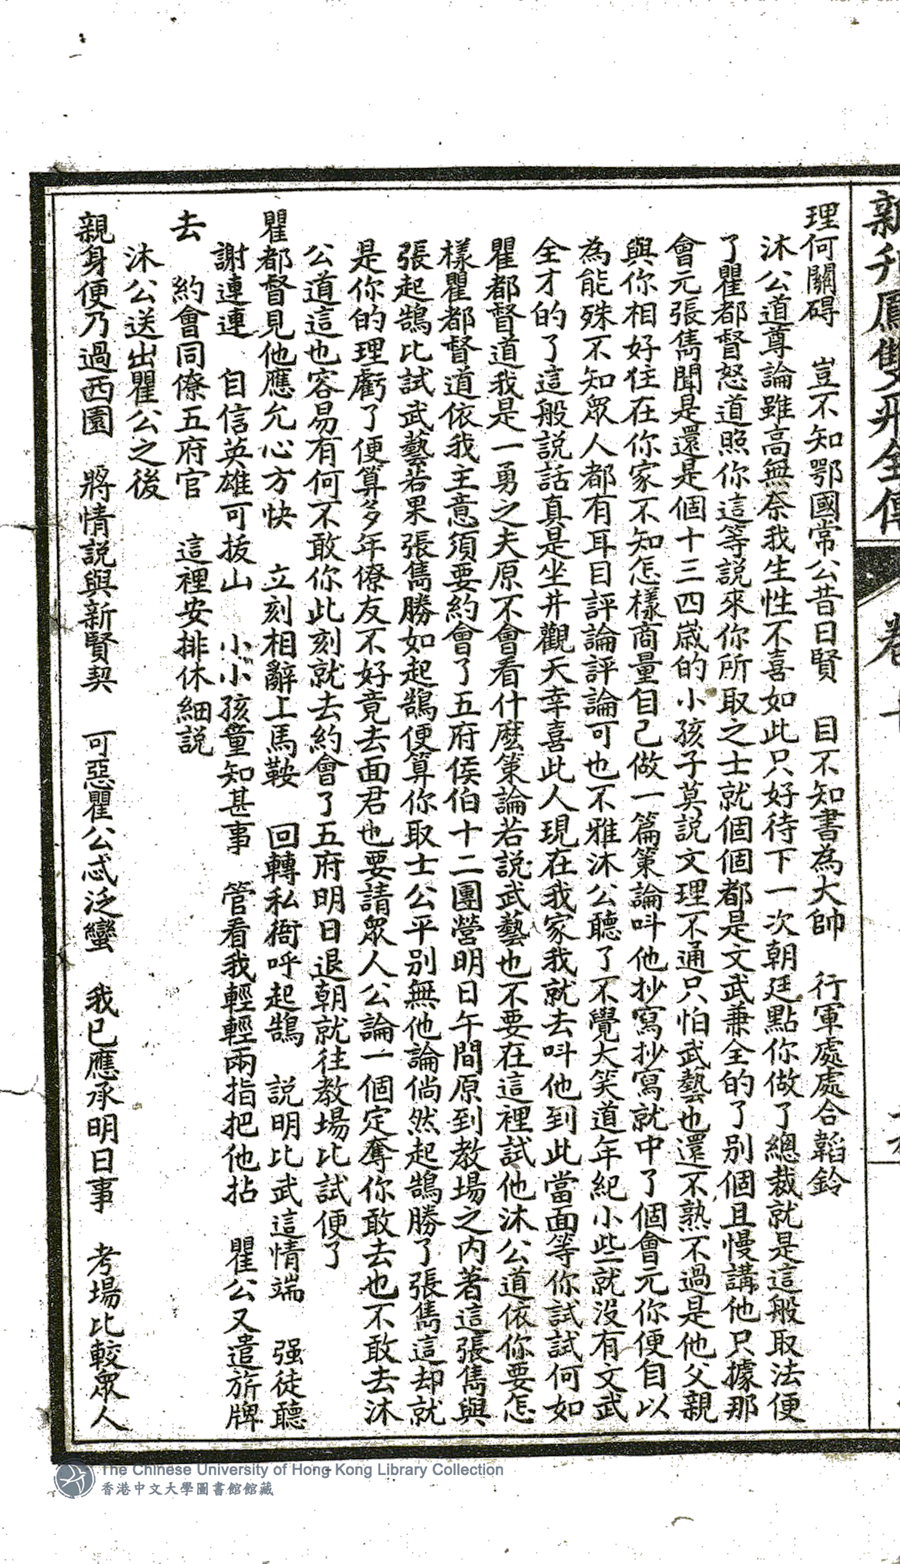 新刊鳳雙飛全傳 卷十
理何關碍 豈不知鄂國常公昔日賢 目不知書為大帥 行軍處處合韜鈴
沐公道尊論雖高無奈我生性不喜如此只好待下一次朝廷點你做了總裁就是這般取法便
了瞿都督怒道照你這等説來你所取之士就個個都是文武兼全的了别個且慢講他只據那
會元張雋聞是還是個十三四歲的小孩子莫説文理不通只怕武藝也還不熟不過是他父親
與你相好住在你家不知怎樣商量自己做一篇策論呌他抄寫抄寫就中了個會元你便自以
為能殊不知眾人都有耳目評論評論可也不雅沐公聽了不覺大笑道年紀小些就沒有文武
全才的了這般説話真是坐井觀天幸喜此人現在我家我就去呌他到此當面等你試試何如
瞿都督道我是一勇之夫原不會看什麽策論若説武藝也不要在這裡試他沐公道依你要怎
樣瞿都督道依我主意須要約會了五府侯伯十二團營明日午間原到教場之内著這張雋與
張起鵠比試武藝若果張雋勝如起鵠便算你取士公平别無他論倘然起鵠勝了張雋這却就
是你的理虧了便算多年僚友不好竟去面君也要請眾人公論一個定奪你敢去也不敢去沐
公道這也容易有何不敢你此刻就去約會了五府明日退朝就往教場比試便了
瞿都督見他應允心方快 立刻相辭上馬鞍 回轉私衙呼起鵠 説明比武這情端 强徒聽
謝連連 自信英雄可拔山 小小孩童知甚事 管看我輕輕兩指把他拈 瞿公又遣旂牌
去 約會同僚五府官 這裡安排休細説
沐公送出瞿公之後
親身便乃過西園 將情説與新賢契 可惡瞿公忒泛蠻 我已應承明日事 考場比較眾人
The Chinese University of Hong Kong Library Collection
香港中文大學圖書館館藏